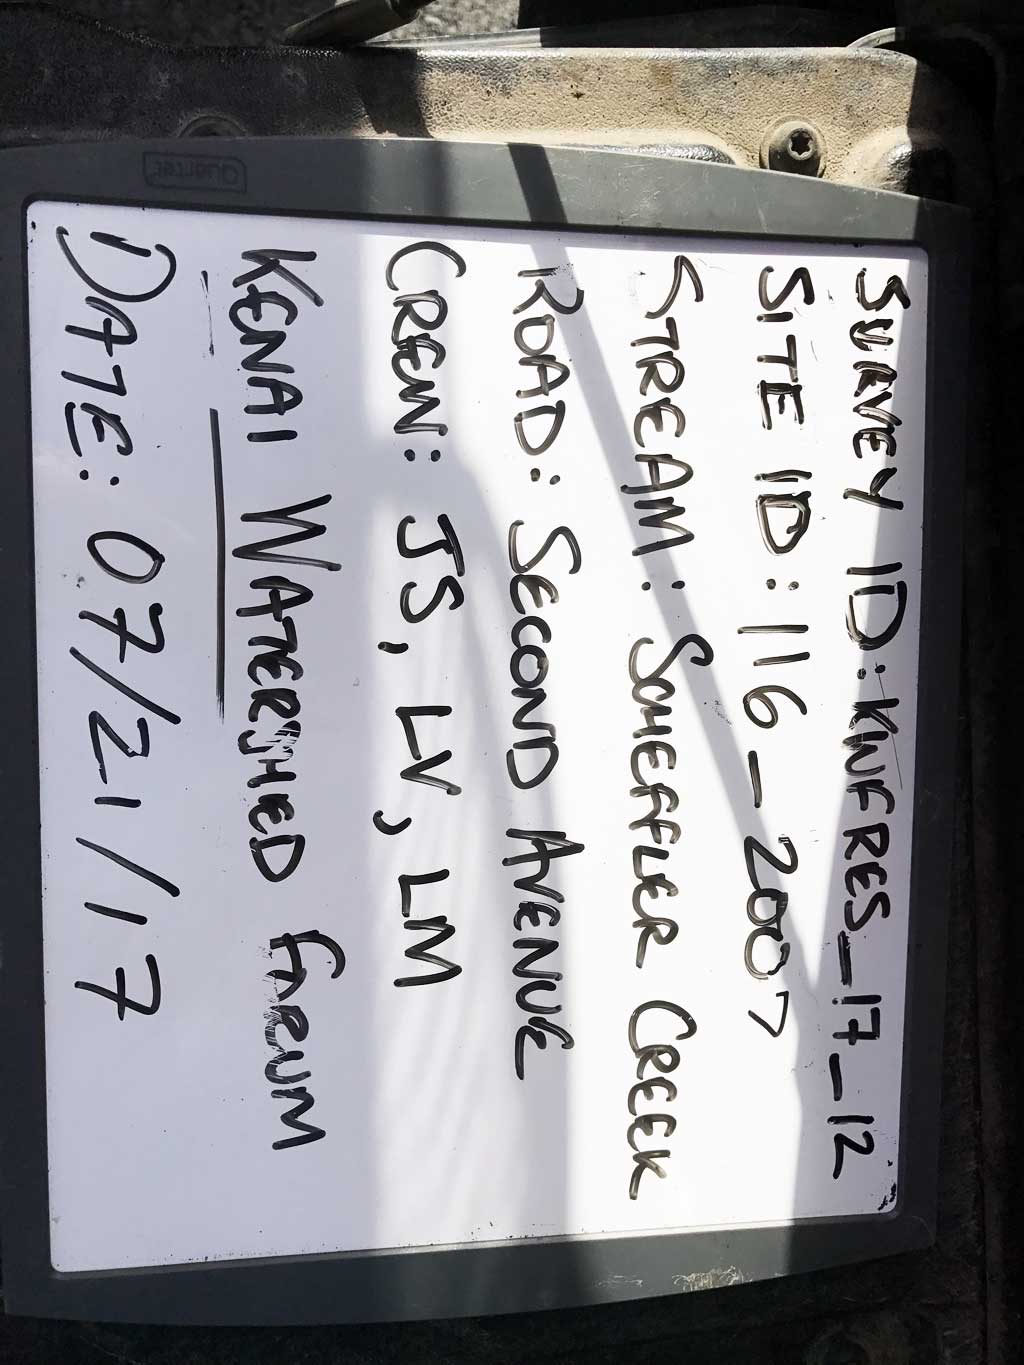 SURVEY ID: KWFRES_17_12
SITE ID: 116_2007
STREAM: SCHEFFLER CREEK
ROAD: SECOND AVENUE
CREW: JS, LV, LM
KENAI WATERSHED FORUM
DATE: 07/21/17
Quartet